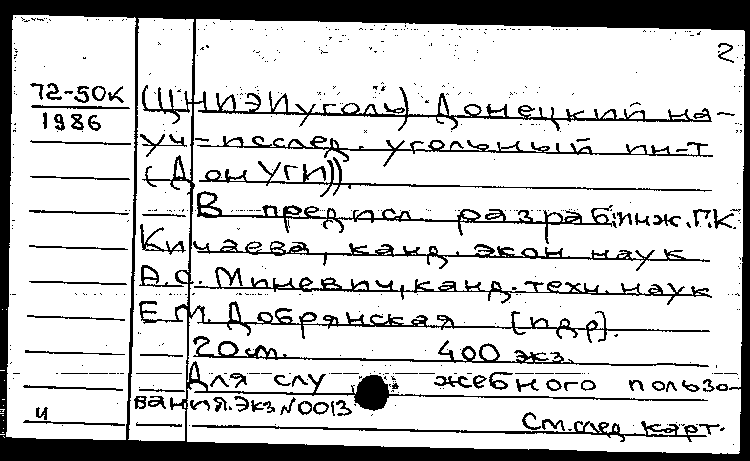 2
72-50к
1986
(ЦНИЭИуголь) Донецкий на-
уч-исслед. угольный ин-т
(ДонУГИ)).
В предисл. разраб.: инж. Г.К.
Кичаева, канд. экон. наук
А.С. Миневич, канд. техн. наук
Е.М. Добрянская [и др].
20 см. 400 экз.
Для служебного пользо-
вания. Экз N0013
и
См. след карт.